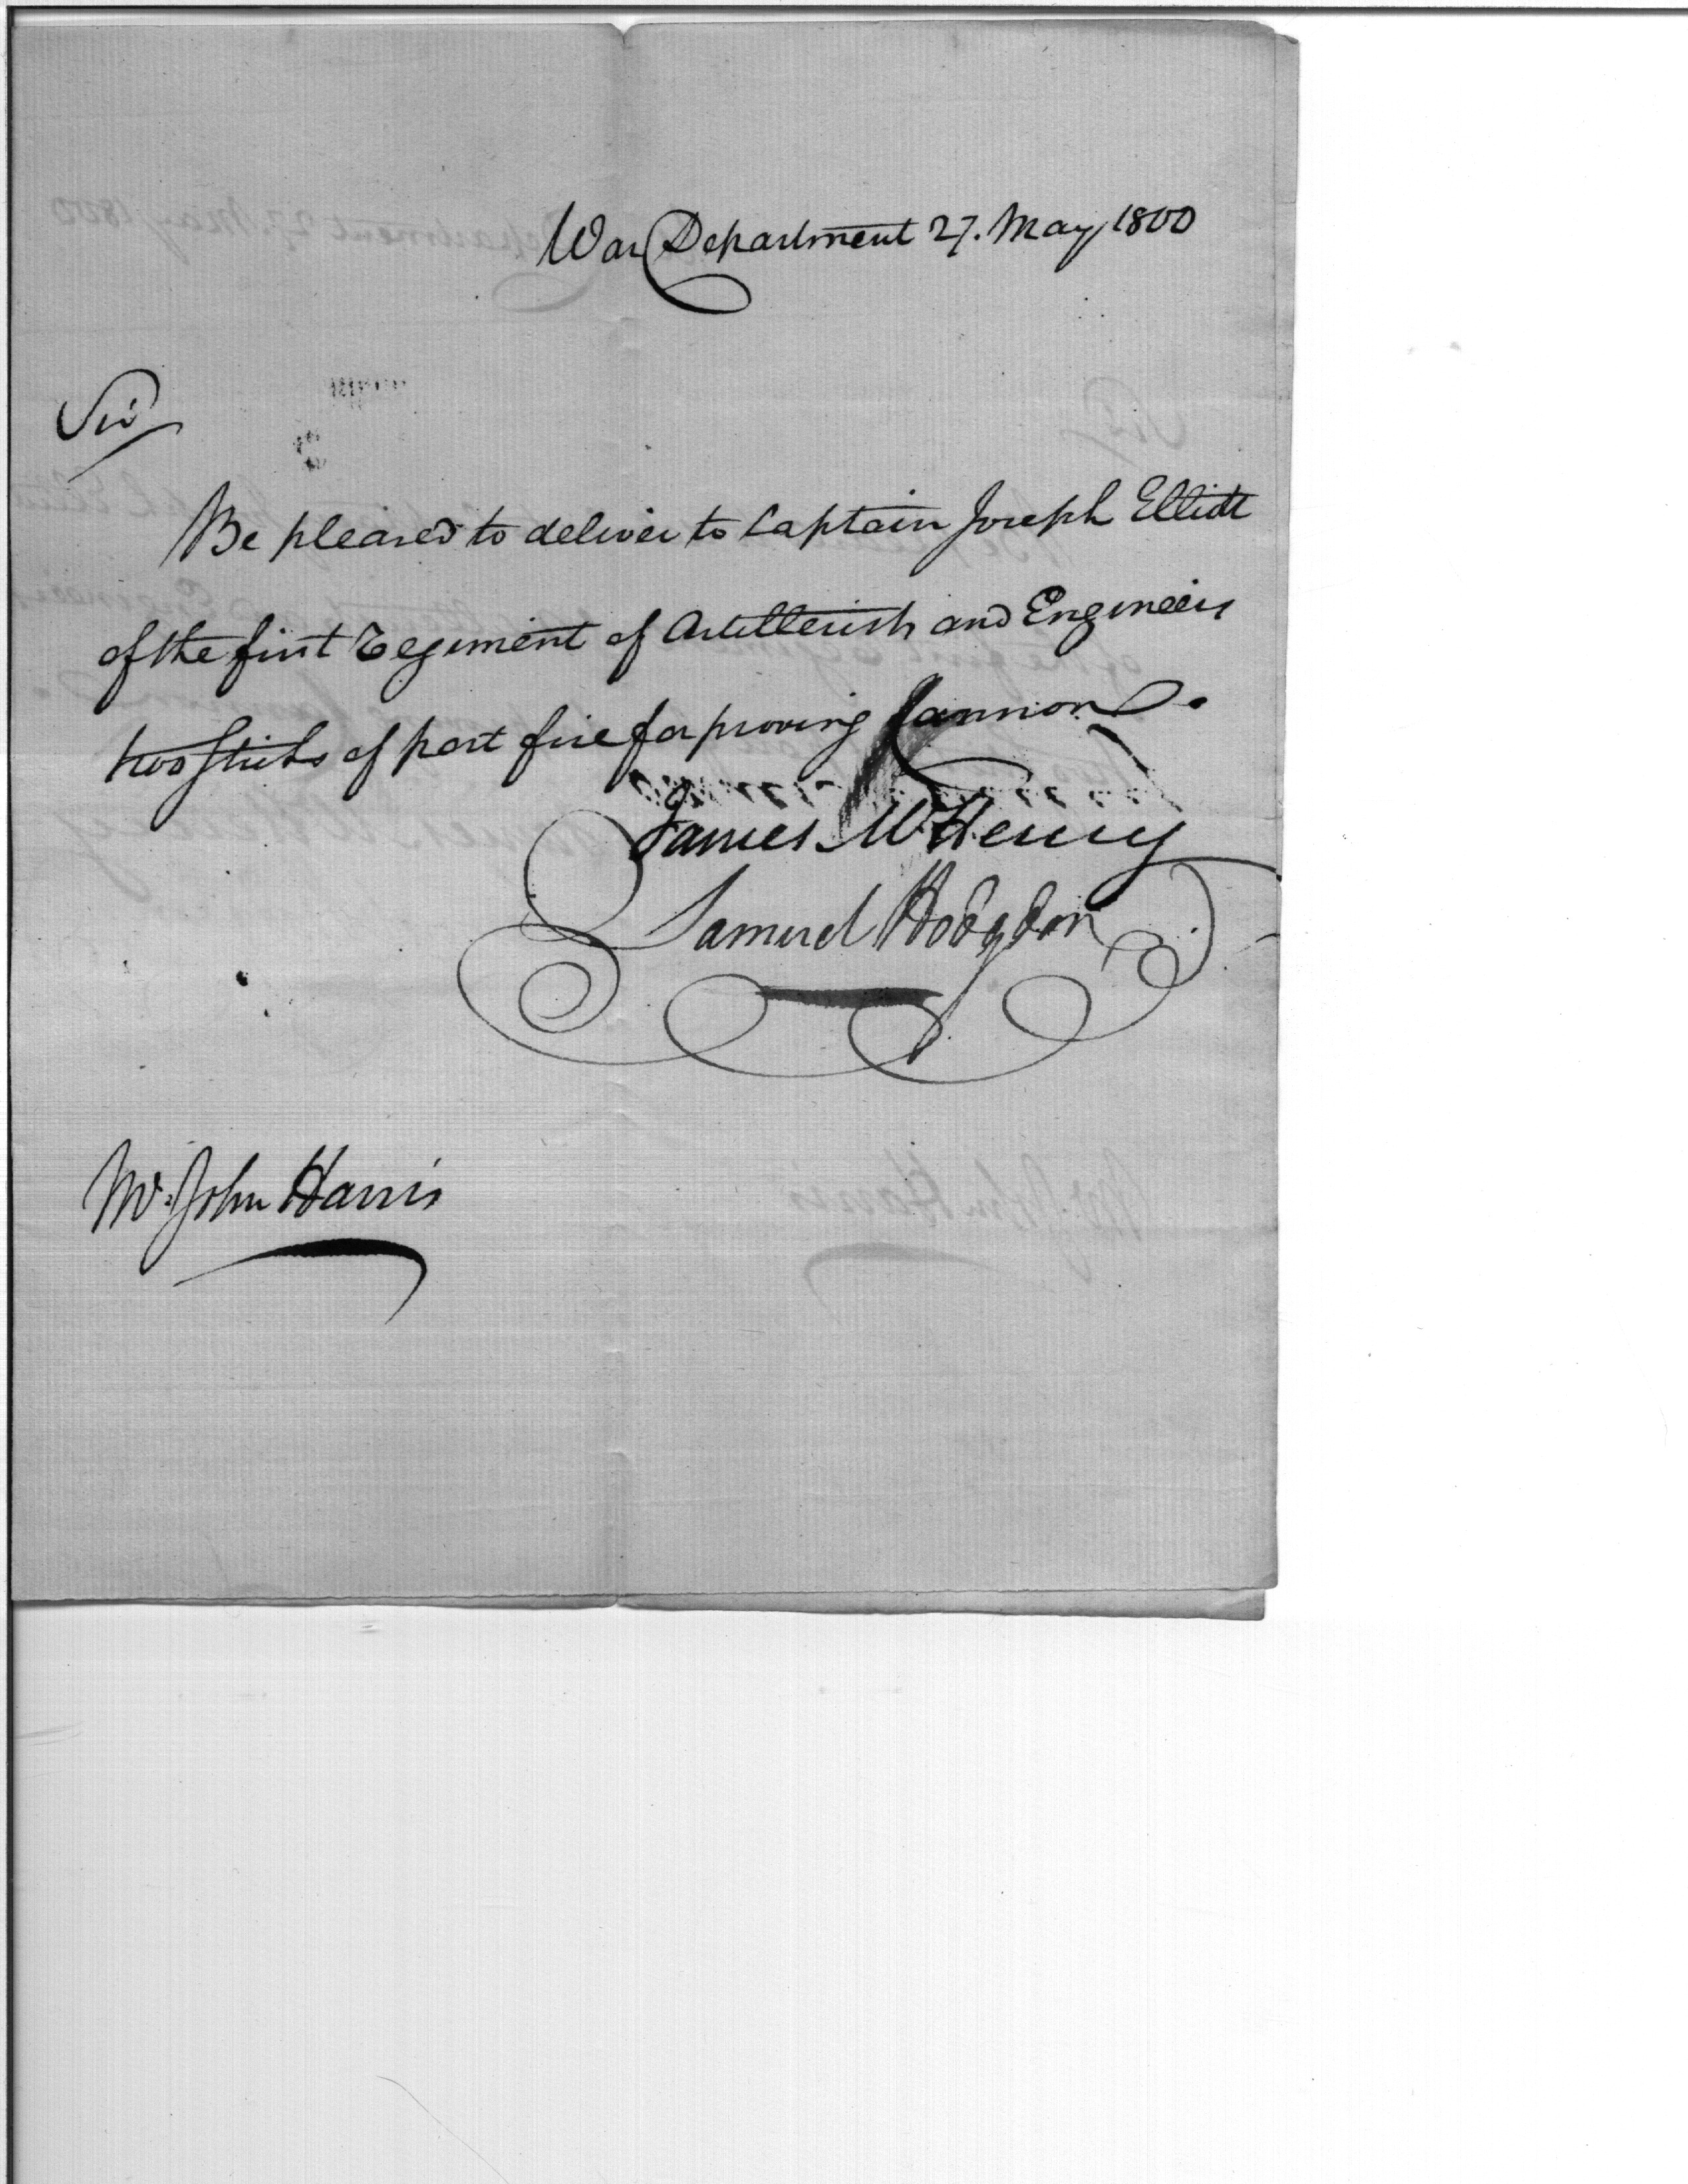 War Department 27. May 1800
Sir
Be pleased to deliver to Captain Joseph Elliott
of the first Regiment of Artillerists and Engineers
two sticks of port fire for proving Cannon.
James McHenry
Samuel Hodgdon
Mr. John Harris